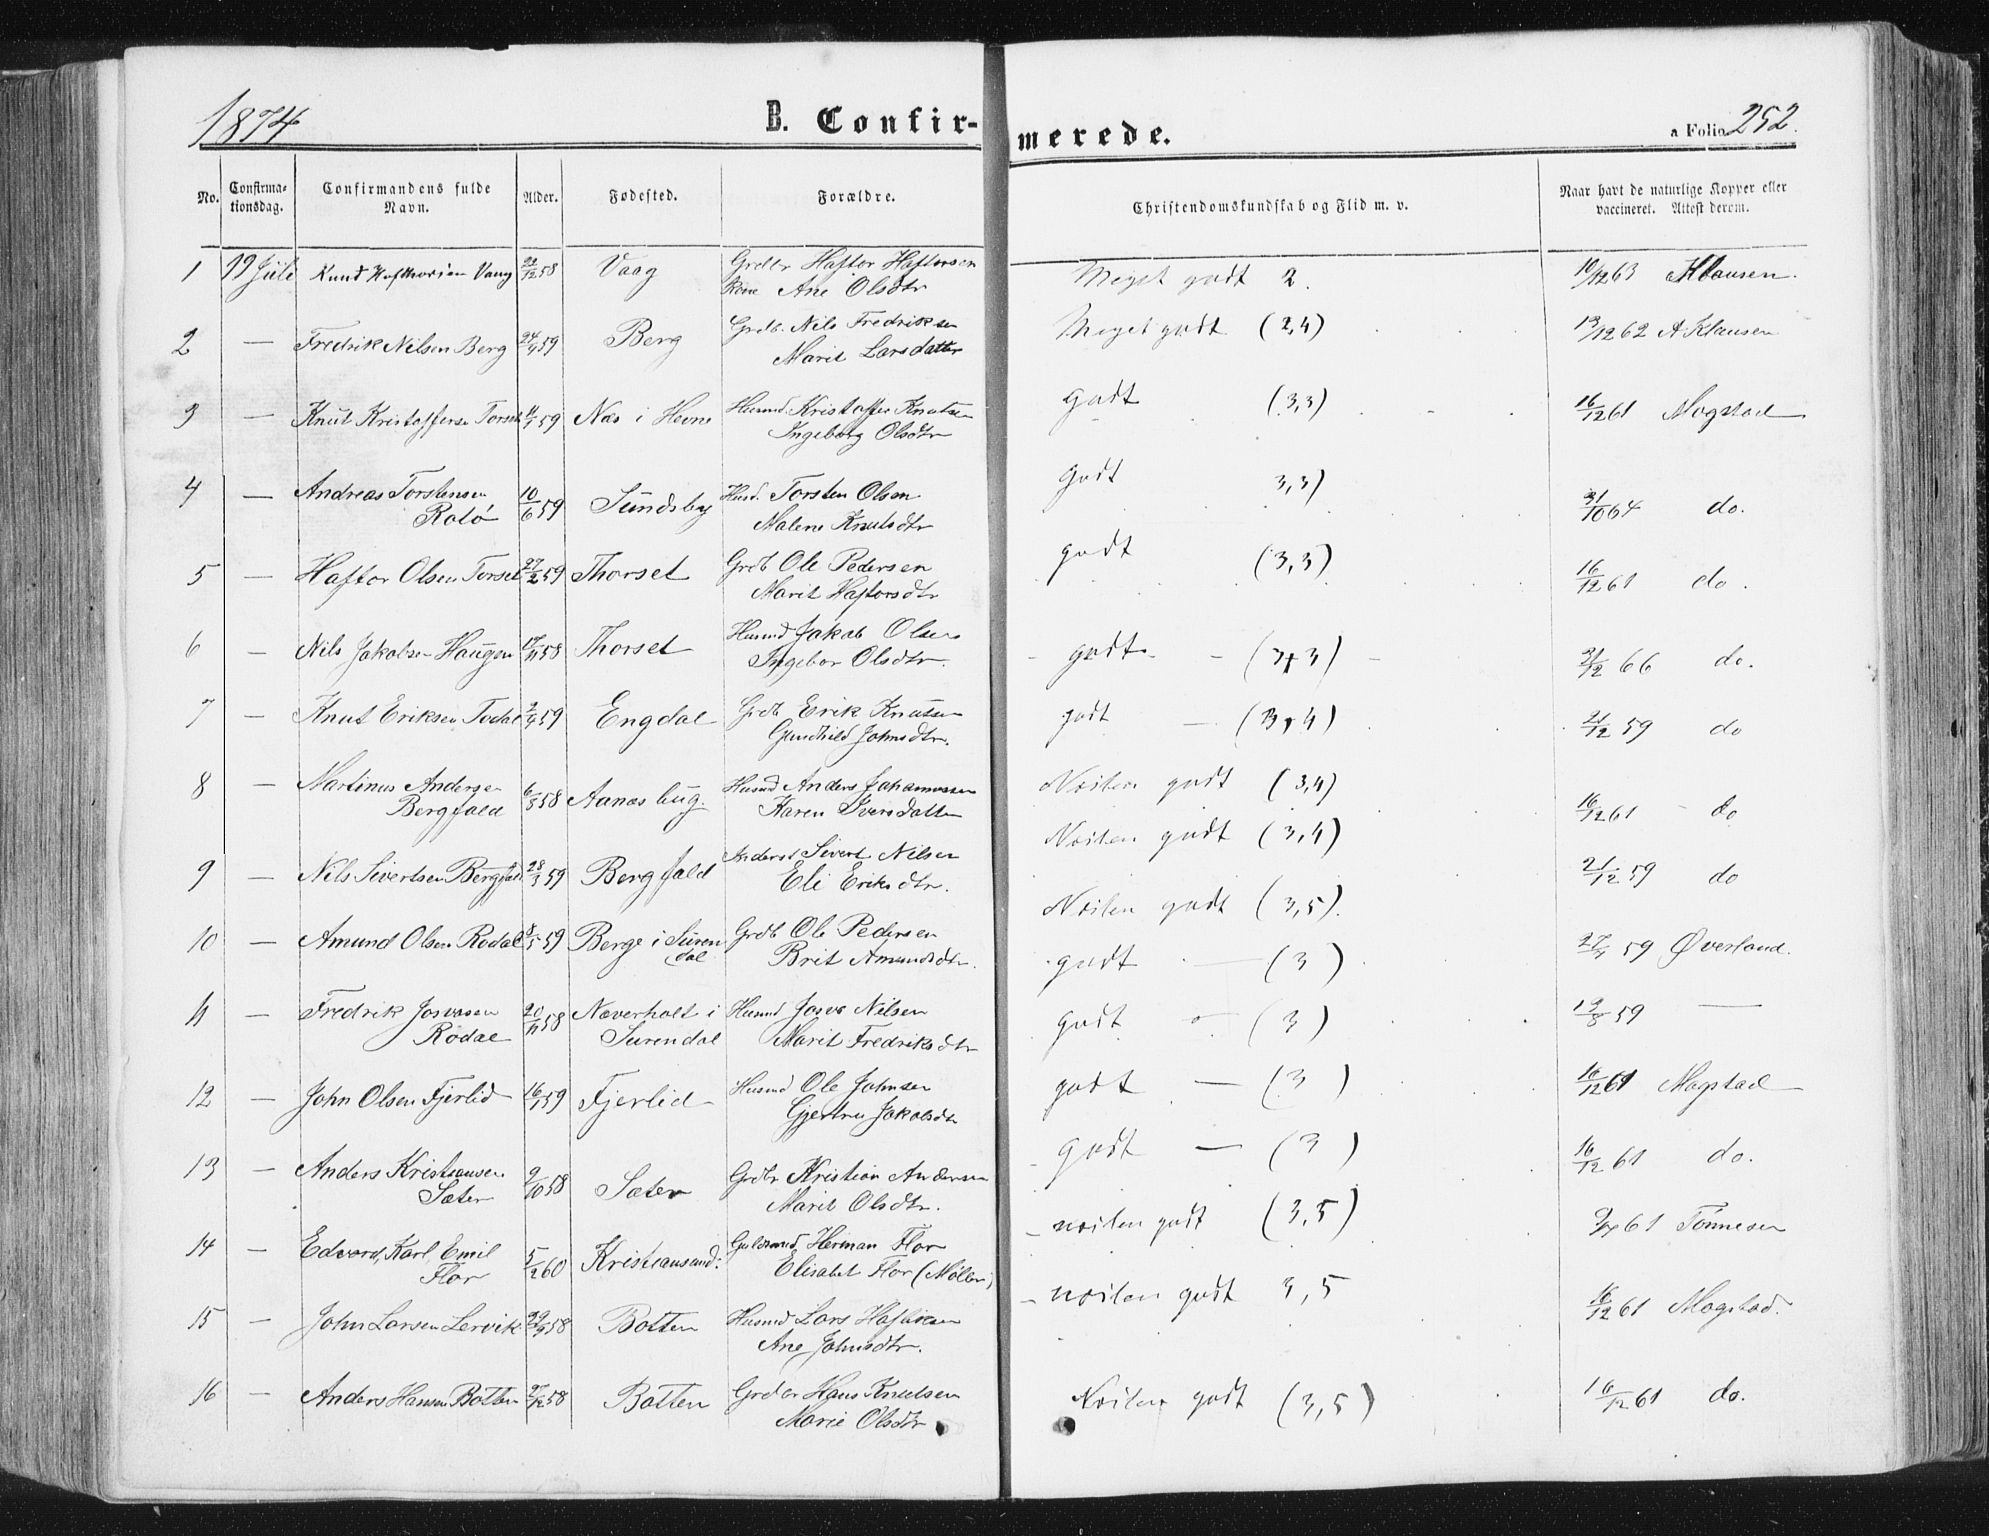 1874 B. Confirmerede. a Folio 252.
No. Confirmationsdag. Confirmandens fulde Navn. Alder. Fødested. Forældre. Christendomskundskab og Flid m. v. Naar havt de naturlige Kopper eller vaccineret. Attest derom.
1 19 Juli Knud Hafthorsen Vaag 58 Vaag Grdbr Haftor Haftorsen
Kone Ane Olsdtr Meget godt 2. 10/12 63 Klausen.
2 — Fredrik Nilsen Berg 24/9 59 Berg Grdb. Nils Fredriksen
Marit Larsdatter Meget godt (2,4) 13/12 62 A Klausen
3 — Knut Kristoffersen Torset 59 Næs i Hevne Husmd. Kristoffer Knutsen
Ingeborg Olsdtr godt (3,3) 16/12 61 Mogstad
4 — Andreas Torstensen
Rolø 10/6 59 Sundsby Husd. Torsten Olsen
Malene Knutsdtr godt 3,3) 31/10 64 do.
5 — Haftor Olsen Torset 27/2 59 Thorset Grdb Ole Pedersen
Marit Haftorsdtr godt (3,3) 16/12 61 do.
6 — Nils Jakobsen Haugen 17/11 58 Thorset Husmd Jakob Olsen
Ingebor Olsdtr. godt — (3,3) 66 do.
7 — Knut Eriksen Todal 2/9 59 Engdal Grdb Erik Knutsen
Gundhild Johnsdtr. godt — (3,4) 21/12 59 do
8 — Martinus Andersen
Bergfald 6/3 58 Aanæsbug. Husmd Anders Johannessen
Karen Iversdatter Noiten godt (3,4) 16/12 61 do
9 — Nils Sivertsen Bergfald 28/3 59 Bergfald Sivert Nilsen
Eli Eriksdtr. Noiten godt (3,4) 21/12 59 do
10 — Amund Olsen Rodal 8/5 59 Berge i Surendal Grdb Ole Pedersen
Brit Amundsdtr. Noiten godt (3,5). 59 Øverland.
11 — Fredrik Josvasen
Rodal 20/11 58 Næverholt i
Surendal Husmd Josva Nilsen
Marit Fredriksdtr godt — (3) 59 —
12 — John Olsen Fjerlid 16/1 59 Fjerlid Husmd Ole Johnsen
Gjertru Jakobsdtr godt (3) 16/12 61 Mogstad
13 — Anders Kristiansen
Sæter 9/10 58 Sæter Grdbr Kristian Andersen
Marit Olsdtr. godt — (3) 16/12 61 do.
14 — Edvard, Karl Emil
Flor 5/2 60 Kristiansund: Guldsmd, Herman Flor
Elisabet Flor (Møller) godt — (3) 61 Tønnesen
15 — John Larsen Lervik 58 Botten Husmd Lars Haftorsen
Ane Johnsdtr. noiten godt (3,5) 16/12 61 Mogstad.
16 — Anders Hansen Botten 58 Botten Grdbr Hans Knutsen
Marie Olsdtr noiten godt 3,5 16/12 61 do.
Noiten godt (3,5)